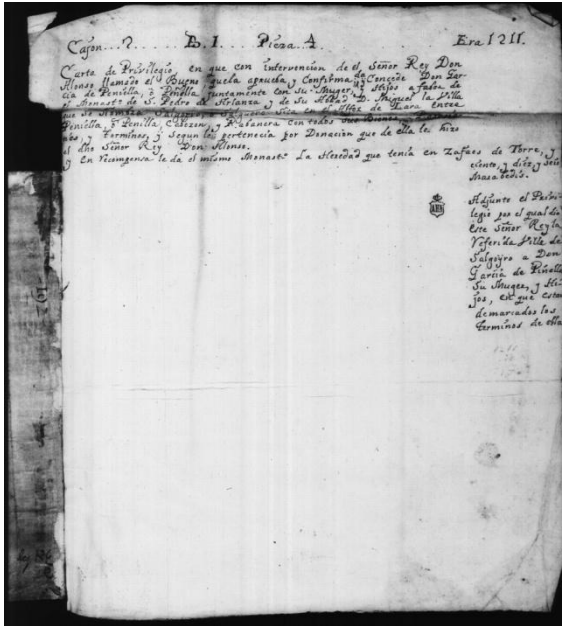 Cajon..2.... B.I. Pieza..4..... Era 1211.
Carta de Privilegio en que con intervencion de el, Señor Rey Don
Alonso llamado el Bueno queda aprueba, y Confirma, Concede Don Gar-
cia de Peniella, ò Pinilla juntamente con su Muger, é Hijos a fabor de
el Monast.º de S. Pedro de Arlanza y de Su Abbad D. Miguel la Villa
que se Sita en el Alfoz de Lara entre
Peniella, ò Penilla, Cabezon, y Rabanera Con todos sus
nos, y Terminos, y Segun les pertenecia por Donacion que de ella les hizo
al dho Señor Rey Don Alonso.
y En recompensa le da el mismo Monast.º La Heredad que tenia en Zafaes de Torre, y
ciento, y diez, y Seis
Marabedis.
AHN
Adjunto el Privi-
legio por el qual dio
este Señor Rey la
Referida Villa de
Salgoyro a Don
Garcia de Piñolla
Su Muger, y Hi-
jos, en que estan
demarcados los
terminos de ella
192